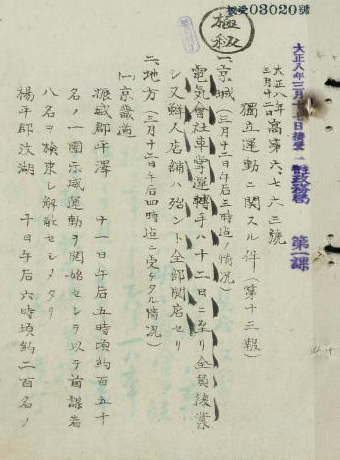 秘受03020號
極秘
大正八年三月十七日接受
主管政務局
第一課
大正八年
三月十二日
高第六七六三號
獨立運動ニ關スル件(第十三報)
一、京城(三月十二日午后三時迄ノ情況)
電氣會社車掌運轉手ハ十二日ニ至リ全員復業
シ又鮮人店舗ハ殆ント全部開店セリ
二、地方(三月十二日午后四時迄ニ受ケタル情況)
(一)京畿道
振威郡平澤 十一日午后五時頃約百五十
名ノ一團示威運動ヲ開始セシヲ以テ首謀者
八名ヲ檢束シ解散セシメタリ
楊平郡汶湖 十日午后六時頃約二百名ノ